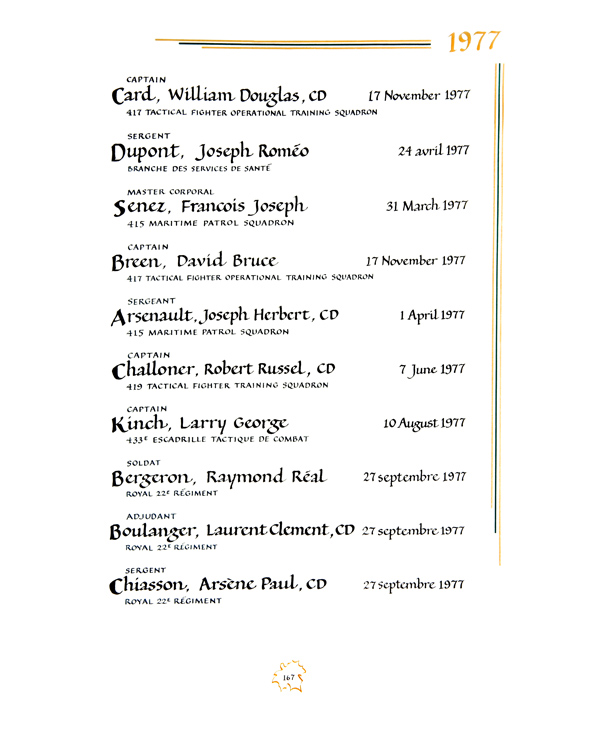 1977
CAPTAIN
Card, William Douglas, CD 17 November 1977
417 TACTICAL FIGHTER OPERATIONAL TRAINING SQUADRON
SERGENT
Dupont, Joseph Roméo 24 avril 1977
BRANCHE DES SERVICES DE SANTÉ
MASTER CORPORAL
Senez, Francois Joseph 31 March 1977
415 MARITIME PATROL SQUADRON
CAPTAIN
Breen, David Bruce 17 November 1977
417 TACTICAL FIGHTER OPERATIONAL TRAINING SQUADRON
SERGEANT
Arsenault, Joseph Herbert, CD 1 April 1977
415 MARITIME PATROL SQUADRON
CAPTAIN
Challoner, Robert Russel, CD 7 June 1977
419 TACTICAL FIGHTER TRAINING SQUADRON
CAPTAIN
Kinch, Larry George 10 August 1977
433E ESCADRILLE TACTIQUE DE COMBAT
SOLDAT
Bergeron, Raymond Réal 27 septembre 1977
ROYAL 22E RÉGIMENT
ADJUDANT
Boulanger, Laurent Clement, CD 27 septembre 1977
ROYAL 22E RÉGIMENT
SERGENT
Chiasson, Arsène Paul, CD 27 septembre 1977
ROYAL 22E RÉGIMENT
167